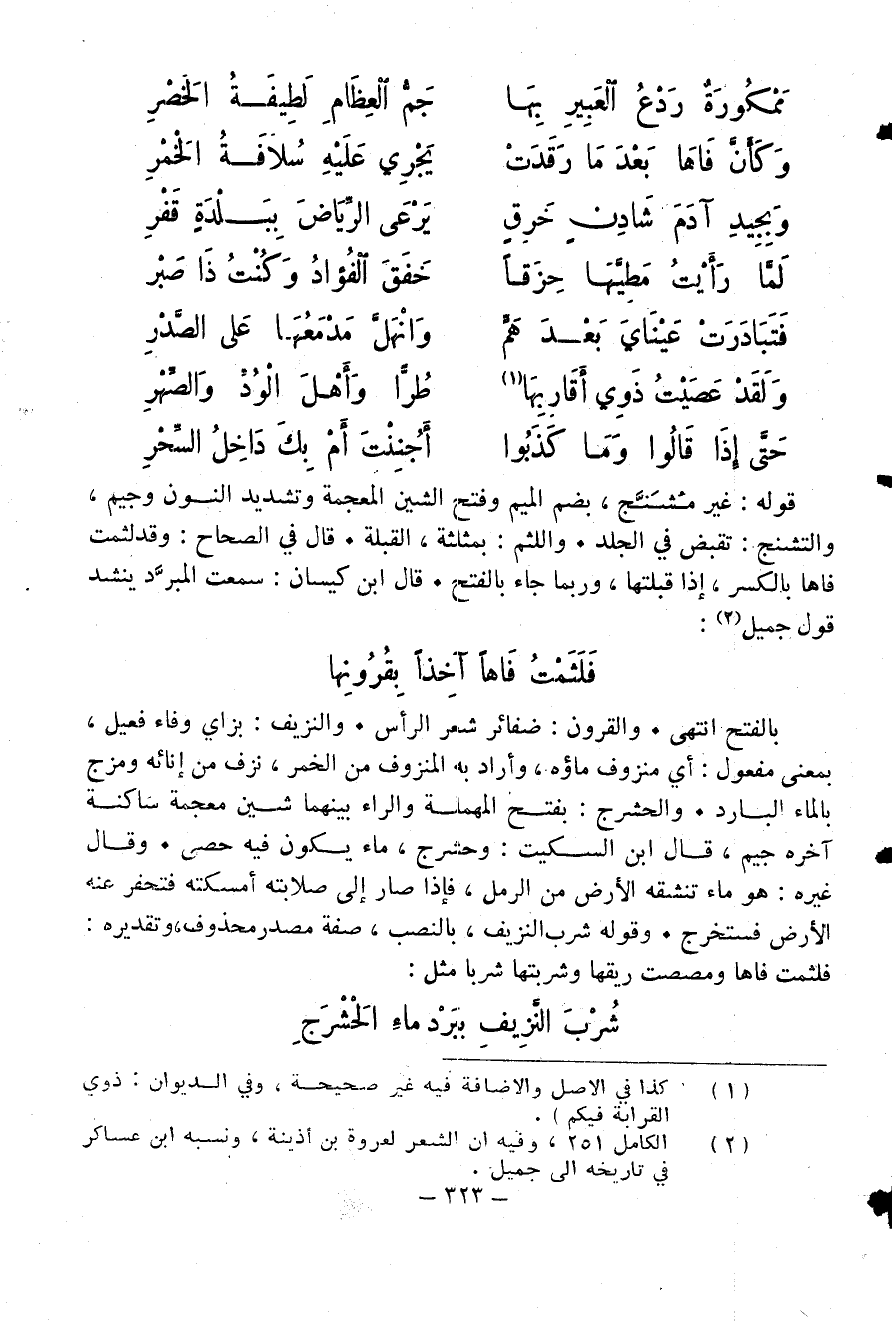 مَمْكُورَةٌ رَدْعُ ٱلْعَبِيرِ بِهَا جَمُّ ٱلْعِظَامِ لَطِيفَةُ الْخَصْرِ
وَكَأَنَّ فَاهَا بَعْدَ مَا رَقَدَتْ يَجْرِي عَلَيْهِ سُلاَفَةُ الْخَمْرِ
وَبِجِيدِ آدَمَ شَادِنٍ خَرِقٍ يَرْعَى الرِّيَاضَ بِبَلْدَةٍ قَفْرِ
لَمَّا رَأَيْتُ مَطِيَّهَا حِزَقاً خَفَقَ ٱلْفُؤَادُ وَكُنْتُ ذَا صَبْرِ
فَتَبَادَرَتْ عَيْنَايَ بَعْدَ هَمٍّ وَانْهَلَّ مَدْمَعُهَا عَلَى الصَّدْرِ
وَلَقَدْ عَصَيْتُ ذَوِي أَقَارِبِهَا(١) طُرًّا وَأَهْلَ الْوُدِّ وَالصِّهْرِ
حَتَّى إِذَا قَالُوا وَمَا كَذَبُوا أَجُنِنْتَ أَمْ بِكَ دَاخِلُ السِّحْرِ
قوله : غير مُشَنَّج ، بضم الميم وفتح الشين المعجمة وتشديد النون وجيم ،
والتشنج : تقبض في الجلد ٠ واللثم : بمثلثة ، القبلة ٠ قال في الصحاح : وقدلثمت
فاها بالكسر ، إذا قبلتها ، وربما جاء بالفتح ٠ قال ابن كيسان : سمعت المبرَّد ينشد
قول جميل(٢) :
فَلَثَمْتُ فَاهاً آخِذاً بِقُرُونِها
بالفتح انتهى ٠ والقرون : ضفائر شعر الرأس ٠ والنزيف : بزاي وفاء فعيل ،
بمعنى مفعول : أي منزوف ماؤه ، وأراد به المنزوف من الخمر ، نزف من إنائه ومزج
بالماء البارد ٠ والحشرج : بفتح المهملة والراء بينهما شين معجمة ساكنة
آخره جيم ، قال ابن السكيت : وحشرج ، ماء يكون فيه حصى ٠ وقال
غيره : هو ماء تنشقه الأرض من الرمل ، فإذا صار إلى صلابته أمسكته فتحفر عنه
الأرض فستخرج ٠ وقوله شرب النزيف ، بالنصب ، صفة مصدر محذوف،وتقديره :
فلثمت فاها ومصصت ريقها وشربتها شربا مثل :
شُرْبَ النَّزِيفِ بِبَرْد ماءِ الْحَشْرَجِ
( ١ ) كذا في الاصل والاضافة فيه غير صحيحة ، وفي الديوان : ذوي
القرابة فيكم ) .
( ٢ ) الكامل ٢٥١ ، وفيه ان الشعر لعروة بن أذينة ، ونسبه ابن عساكر
في تاريخه الى جميل .
– ٣٢٣ –